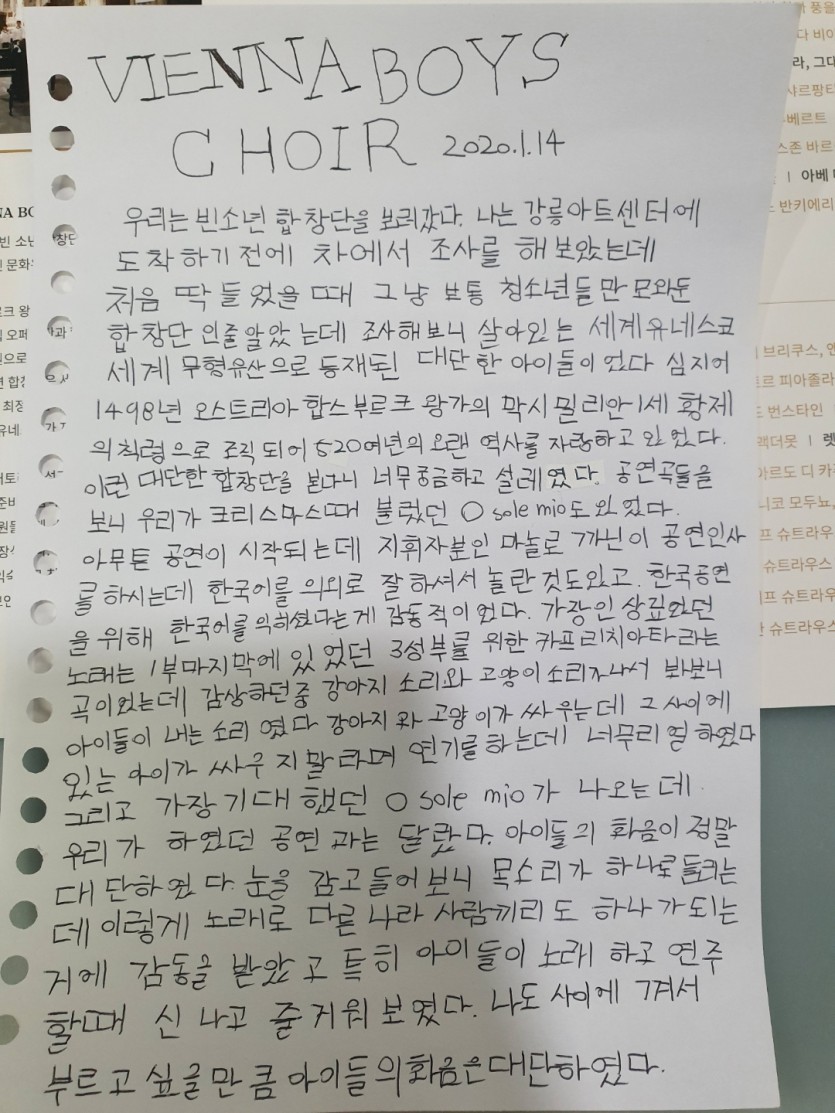 VIENNA BOYS
CHOIR 2020.1.14
우리는 빈소년 합창단을 보러갔다. 나는 강릉아트센터에
도착하기 전에 차에서 조사를 해보았는데
처음 딱 들었을 때 그냥 보통 청소년들만 모와둔
합창단 인줄 알았는데 조사해보니 살아있는 세계유네스코
세계 무형유산으로 등재된 대단한 아이들이었다 심지어
1498년 오스트리아 합스부르크 왕가의 막시밀리안 1세 황제
의 칙령으로 조직되어 520여년의 오랜 역사를 자랑하고 있었다.
이런 대단한 합창단을 본다니 너무궁금하고 설레였다. 공연곡들을
보니 우리가 크리스마스때 불렀던 O sole mio도 있었다.
아무튼 공연이 시작되는데 지휘자분인 마놀로 까닌이 공연인사
를 하시는데 한국어를 의외로 잘하셔서 놀란 것도있고. 한국공연
을 위해 한국어를 익히셨다는게 감동적이었다. 가장인상깊었던
노래는 1부마지막에 있었던 3성부를 위한 카프리치아타라는
곡이었는데 감상하던중 강아지 소리와 고양이소리가나서 봐보니
아이들이 내는 소리였다 강아지와 고양이가 싸우는데 그 사이에
있는 아이가 싸우지말라며 연기를하는데 너무리얼하였다
그리고 가장기대했던 O sole mio가 나오는데
우리가 하였던 공연과는 달랐다. 아이들의 화음이 정말
대단하였다. 눈을 감고들어보니 목소리가 하나로들리는
데 이렇게 노래로 다른 나라 사람끼리도 하나가되는
거에 감동을 받았고 특히 아이들이 노래하고 연주
할때 신나고 즐거워보였다. 나도 사이에 껴서
부르고 싶을만큼 아이들의화음은대단하였다.